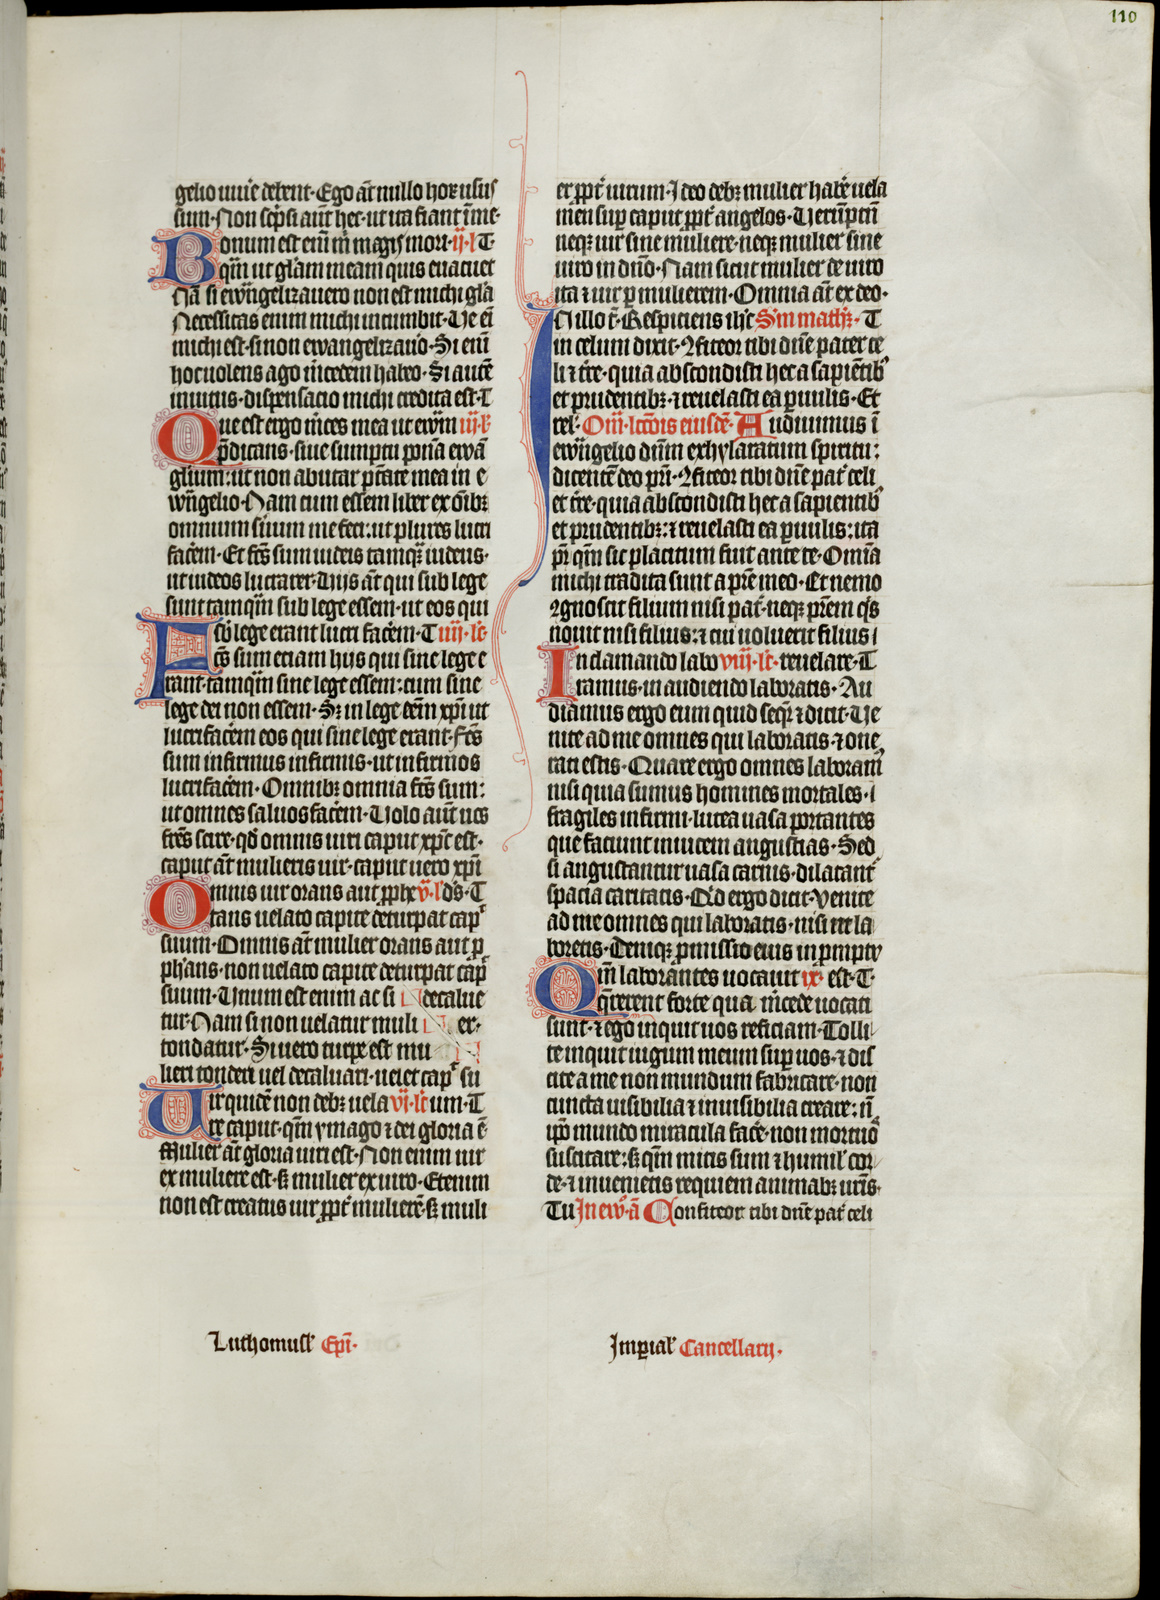 110
gelio viuere debent· Ego aut̄ nullo hoꝝ usus
sum· Non sc̄psi aut̄ hec· ut ita fiant in me·
Bonum est em̄ m̄ magis mori· ij· l̄ T
qm̄ ut gl̄am meam quis euacuet
Nā si ewāgelizauero non est michi gl̄a
Necessitas enim michi incumbit· Ve em̄
michi est· si non ewangelizauēo· Si enim
hoc uolens ago m̄cedem habeo· Si autē
inuitus· dispensacio michi credita est· T
Que est ergo m̄ces mea ut ewm̄ iij· l̄
p̄dicans· siue sumptu ponā ewā
glium: ut non abutar p̄tate mea in e
wāgelio· Nam cum essem liber ex oībꝫ
omnium seruum me feci: ut plures lucri
facēm· Et fc̄s sum iudeis tamqꝫ iudeus·
ut iudeos lucrarer· Hijs aut̄ qui sub lege
sunt tamqm̄ sub lege essem· ut eos qui
sub lege erant lucri facēm· T iiij· lc̄
Fc̄s sum eciam hijs qui sine lege e
rant· tamqm̄ sine lege essem: cum sine
lege dei non essem· Sꝫ in lege eēm xp̄i ut
lucrifacēm eos qui sine lege erant· Fc̄s
sum infirmus infirmis· ut infirmos
lucrifacēm· Omnibꝫ omnia fc̄s sum:
ut omnes saluos facēm· Volo aut̄ uos
frēs scire· qd̄ omnis uiri caput xp̄c est·
caput aut̄ mulieris uir· caput uero xp̄i
Omnis uir orans aut p̄phe v· l̄ ds̄· T
tans uelato capite deturpat cap̄
suum· Omnis aut̄ mulier orans aut p̄
phans· non uelato capite deturpat cap̄
suum· Unum est enim ac si decalue
tur· Nam si non uelatur muli er·
tondatur· Si uero turpe est mu
lieri tonderi uel decaluari· uelet cap̄ su
Vir quidē non debꝫ uela vj· lc̄ um· T
re caput· qm̄ ymago ⁊ dei gloria ē
Mulier aut̄ gloria uiri est· Non enim uir
ex muliere est· sꝫ mulier ex uiro· Etenim
non est creatus uir pp̄t mulierē· sꝫ muli
er pp̄t uirum· Ideo debꝫ mulier habē uela
men sup̄ caput pp̄t angelos· Verūptn̄
neqꝫ uir sine muliere· neqꝫ mulier sine
uiro in dn̄o· Nam sicut mulier de uiro
ita ⁊ uir p̄ mulierem· Omnia aut̄ ex deo·
In illo t̄· Respiciens ihc̄ Sm̄ math̄· T
in celum dixit· Ꝯfiteor tibi dn̄e pater ce
li ⁊ t̄re· quia abscondisti hec a sapientibꝰ
et prudentibꝫ· ⁊ reuelasti ea p̄uulis· Et
rel̄· Om̄· lccōis eiusdē· Audiuimus ī
ewāgelio dn̄m exhylaratum spiritu:
dicentē deo pr̄i· Ꝯfiteor tibi dn̄e pat̄ celi
et t̄re· quia abscondisti hec a sapientibꝰ
et prudentibꝫ: ⁊ reuelasti ea p̄uulis: ita
pr̄ qm̄ sic placitum fuit ante te· Omīa
michi tradita sunt a pr̄e meo· Et nemo
ꝯgnoscit filium nisi pat̄· neqꝫ pr̄em q̄s
nouit nisi filius: ⁊ cui uoluerit filius /
In clamando labo viij· lc̄· reuelare· T
ramus· in audiendo laboratis· Au
diamus ergo eum quid seqr̄ ⁊ dicit· Ve
nite ad me omnes qui laboratis· ⁊ one
rati estis· Quare ergo omnes laboram̄
nisi quia sumus homines mortales· /
fragiles infirmi· lutea uasa portantes
que faciunt inuicem angustias· Sed
si angustantur uasa carnis· dilatant̄
spacia caritatis· Qd̄ ergo dicit· Venite
ad me omnes qui laboratis· nisi ne la
boretis· Deniqꝫ p̄missio eius in p̄mptu
Qm̄ laborantes uocauit ix· est· T·
q̄rerent forte qua m̄cede uocati
sunt· ⁊ ego inquit uos reficiam· Tolli
te inquit iugum meum sup̄ uos· ⁊ dis
cite a me non mundum fabricare· non
cuncta uisibilia ⁊ inuisibilia creare: n̄
ipō mundo miracula facē· non mortuō
suscitare: sꝫ qm̄ mitis sum ⁊ humil̄ cor
de· ⁊ inuenietis requiem animabꝫ ur̄is·
Tu In ew̄· ā Confiteor tibi dn̄e pat̄ celi
Luthomusl̄ Ep̄i·
Imp̄ial̄ Cancellarij·